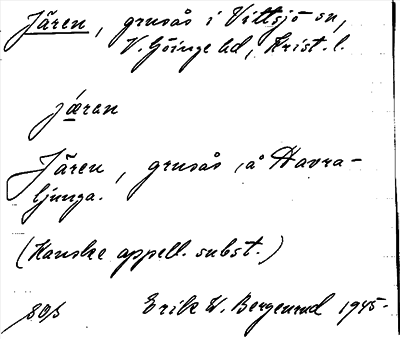 Jären, grusås i Vittsjö sn,
V. Göinge hd, Krist. l.
jæran
Jären, grusås å Havra-
ljunga.
(Kanske appell. subst.)
Erik W. Bergenrud 1945.